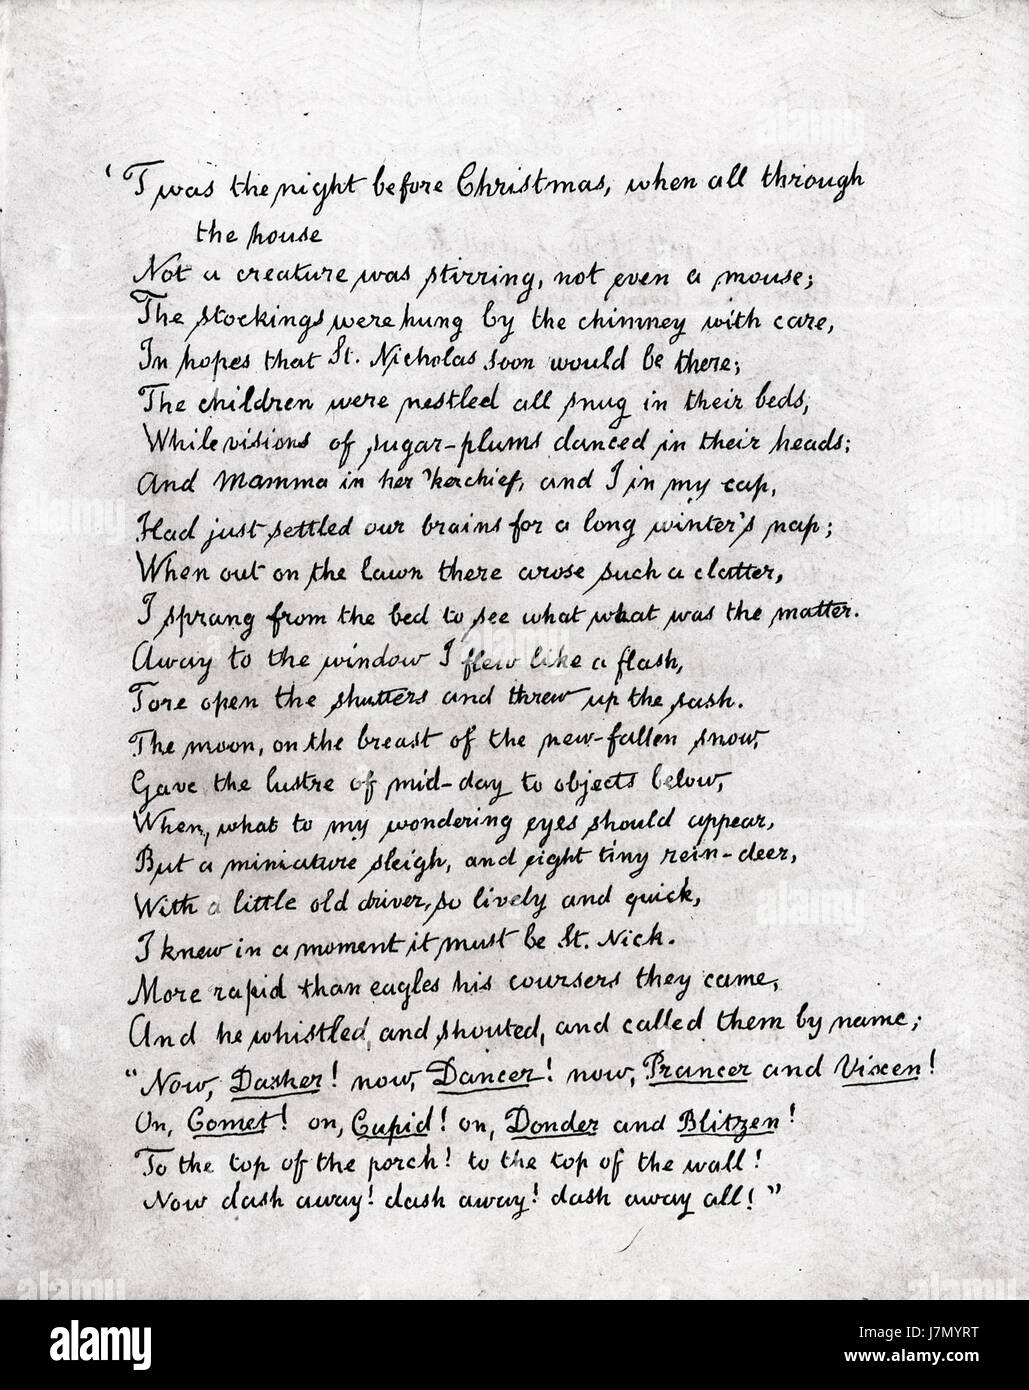 'Twas the night before Christmas, when all through
the house
Not a creature was stirring, not even a mouse;
The stockings were hung by the chimney with care,
In hopes that St. Nicholas soon would be there;
The children were nestled all snug in their beds,
While visions of sugar-plums danced in their heads;
And Mamma in her 'kerchief, and I in my cap,
Had just settled our brains for a long winter's nap;
When out on the lawn there arose such a clatter,
I sprang from the bed to see what what was the matter.
Away to the window I flew like a flash,
Tore open the shutters and threw up the sash.
The moon, on the breast of the new-fallen snow,
Gave the lustre of mid-day to objects below,
When, what to my wondering eyes should appear,
But a miniature sleigh, and eight tiny rein-deer,
With a little old driver, so lively and quick,
I knew in a moment it must be St. Nick.
More rapid than eagles his coursers they came,
And he whistled, and shouted, and called them by name;
"Now, Dasher! now, Dancer! now, Prancer and Vixen!
On, Comet! on, Cupid! on, Donder and Blitzen!
To the top of the porch! to the top of the wall!
Now dash away! dash away! dash away all!"
alamy
alamy
Image ID: J7MYRT
www.alamy.com